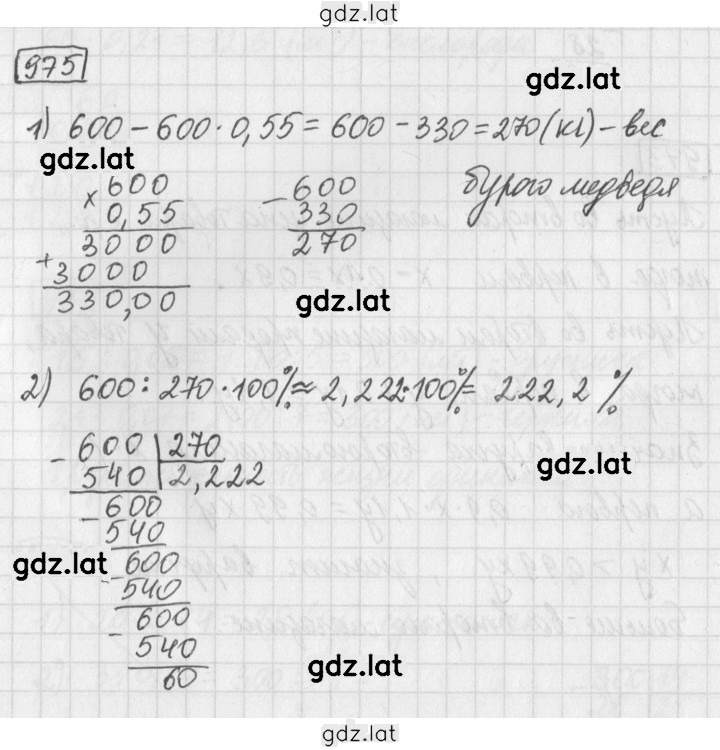 gdz.lat
975
gdz.lat
1) 600 - 600 · 0,55 = 600 - 330 = 270 (кг) - вес
бурого медведя
gdz.lat
× 600
0,55
3000
+ 3000
330,00
- 600
330
270
gdz.lat
2) 600 : 270 · 100% ≈ 2,222 · 100% = 222,2 %
- 600 | 270
540 | 2,222
- 600
540
- 600
540
- 600
540
60
gdz.lat
gdz.lat
gdz.lat
gdz.lat